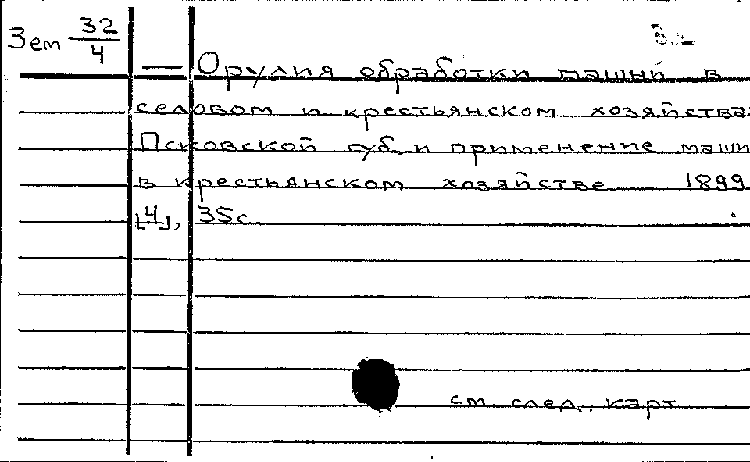 Зем 32/4
— Орудия обработки пашни в
селовом и крестьянском хозяйствах
Псковской губ. и применение машин
в крестьянском хозяйстве 1899
[4], 35с
см. след. карт